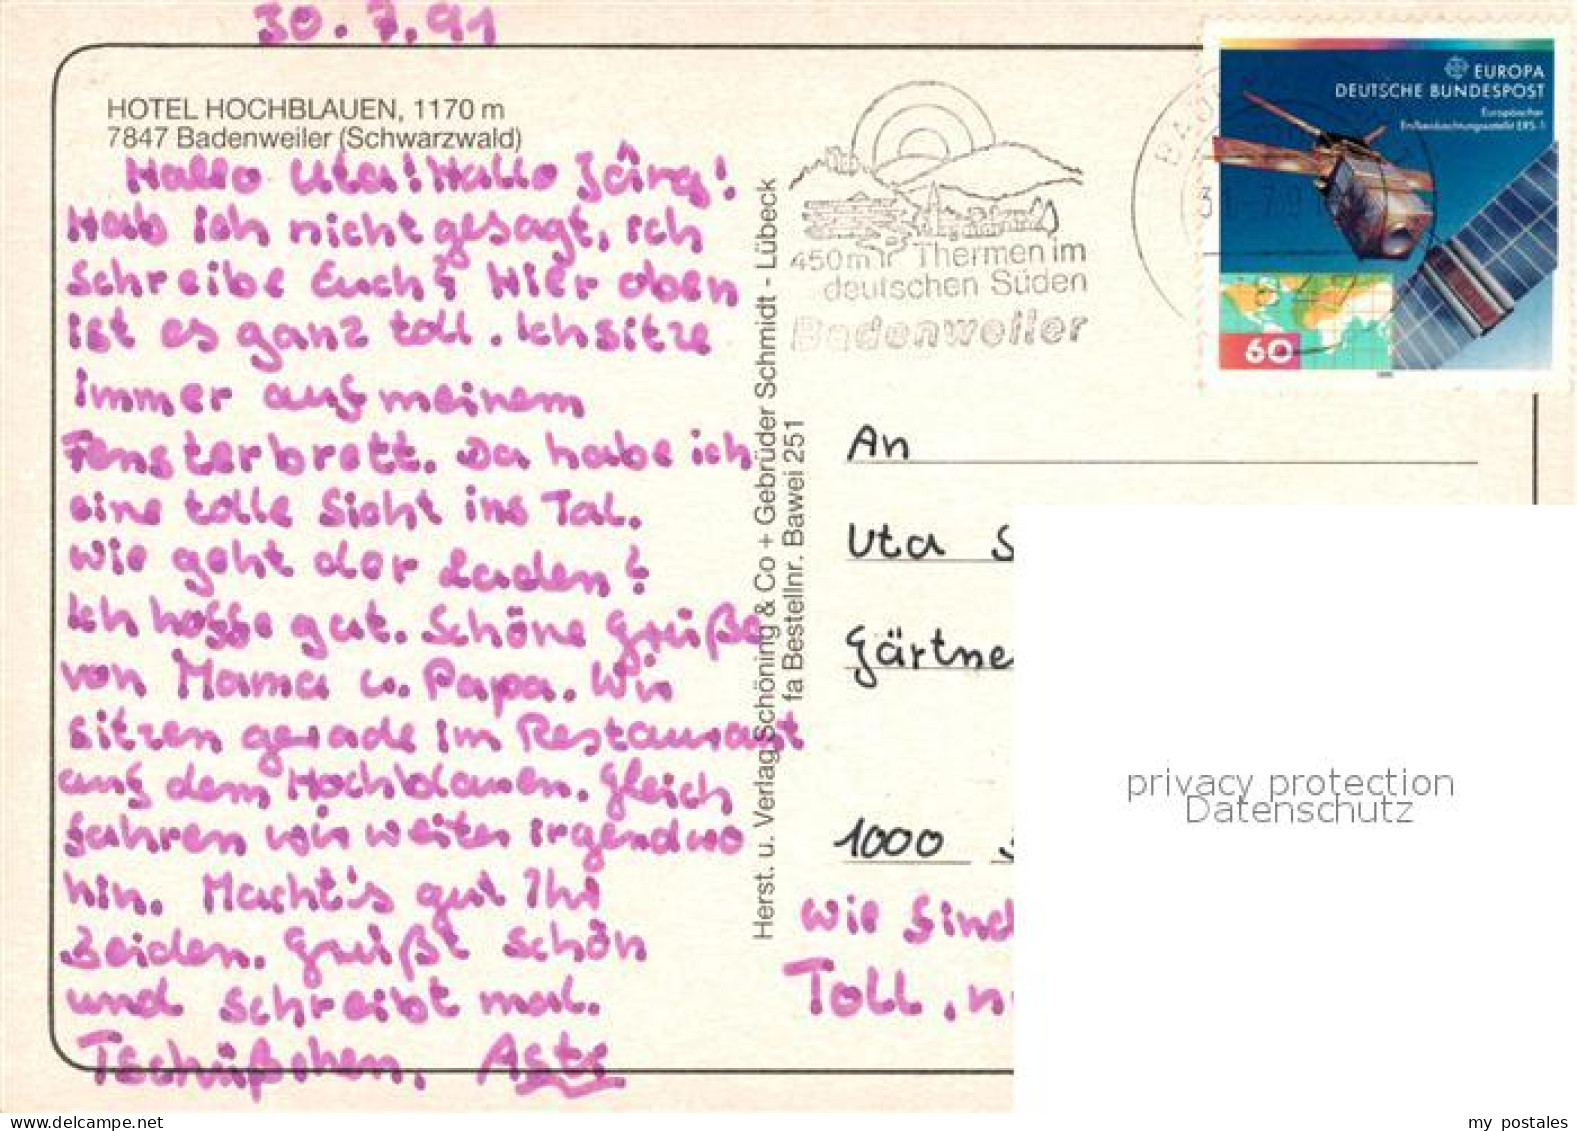 30.7.91
HOTEL HOCHBLAUEN, 1170 m
7847 Badenweiler (Schwarzwald)
Hallo Uta! Hallo Jörg!
Hab ich nicht gesagt, ich
schreibe Euch? Hier oben
ist es ganz toll. Ich sitze
immer auf meinem
Fensterbrett. Da habe ich
eine tolle Sicht ins Tal.
Wie geht der Laden?
Ich hoffe gut. Schöne Grüße
von Mama u. Papa. Wir
sitzen gerade im Restaurant
auf dem Hochblauen. Gleich
fahren wir weiter irgendwo
hin. Macht's gut Ihr
Beiden. Grüßt schön
und schreibt mal.
Tschüßchen,
Herst. u. Verlag Schöning & Co + Gebrüder Schmidt - Lübeck
fa Bestellnr. Bawei 251
450m Thermen im
deutschen Süden
Badenweiler
EUROPA
DEUTSCHE BUNDESPOST
Europäischer
Erdbeobachtungssatellit ERS-1
60
An
Uta S
Gärtne
1000
Wie sind
Toll, n
privacy protection
Datenschutz
delcampe.net
my postales